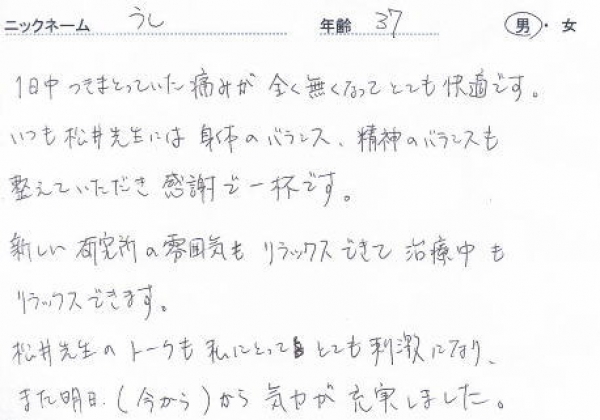 ニックネーム うし 年齢 37 男・女
1日中つきまとっていた痛みが全く無くなってとても快適です。
いつも松井先生には身体のバランス、精神のバランスも
整えていただき感謝で一杯です。
新しい研究所の雰囲気もリラックスできて治療中も
リラックスできます。
松井先生のトークも私にとってとても刺激になり、
また明日.(今から)から気力が充実しました。